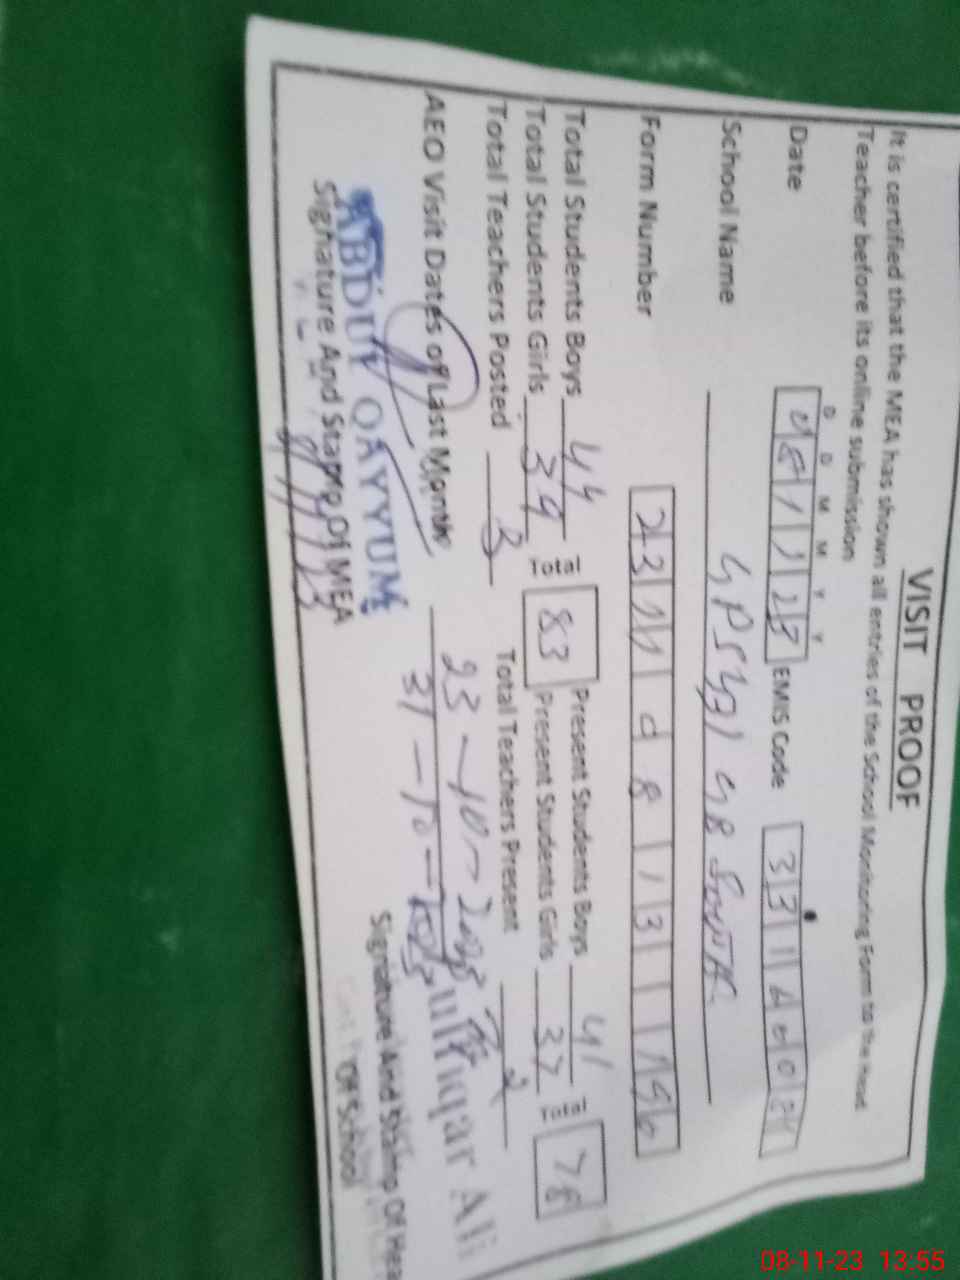 VISIT PROOF
It is certified that the MEA has shown all entries of the School Monitoring Form to the Head
Teacher before its online submission
D D M M Y Y
Date 08 11 23 EMIS Code
School Name GPS 48
Form Number
Total Students Boys 44 Total 83 Present Students Boys 41 Total 78
Total Students Girls 39 Present Students Girls 37
Total Teachers Posted 3 Total Teachers Present 2
AEO Visit Dates of Last Months 23-10-2023
31-10-2023
ABDUL QAYYUM
Zulfiqar Ali
Signature And Stamp Of MEA
8/11/23
Signature And Stamp Of Head
Of School
08-11-23 13:55